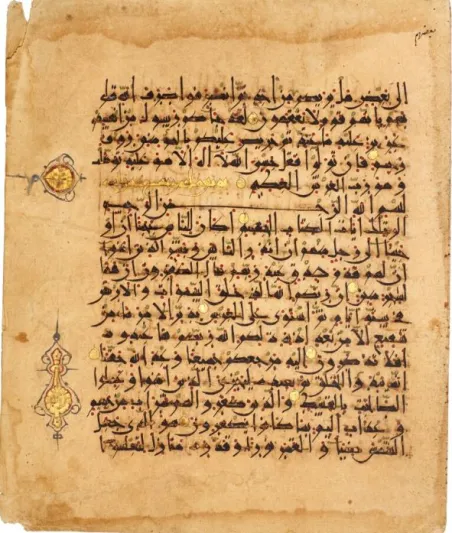 الى بعض هل يريكم من احد ثم انصرفوا صرف الله قلو
بهم بانهم قوم لا يفقهون لقد جاكم رسول من انفسكم
عزيز عليه ما عنتم حريص عليكم بالمومنين روف
رحيم فان تولوا فقل حسبي الله لا اله الا هو عليه توكلت
وهو رب العرش العظيم
بسم الله الرحمن الرحيم
الر تلك ايت الكتاب الحكيم اكان للناس عجبا ان او
حينا الى رجل منهم ان انذر الناس وبشر الذين امنوا
ان لهم قدم صدق عند ربهم قال الكفرون ان هذا
لسحر مبين ان ربكم الله الذي خلق السموات والارض
في ستة ايام ثم استوى على العرش يدبر الامر ما من
شفيع الا من بعد اذنه ذلكم الله ربكم فاعبدوه
افلا تذكرون اليه مرجعكم جميعا وعد الله حقا
انه يبدوا الخلق ثم يعيده ليجزي الذين امنوا وعملوا
الصلحت بالقسط والذين كفروا لهم شراب من حميم
وعذاب اليم بما كانوا يكفرون هو الذي جعل
الشمس ضيا والقمر نورا وقدره منازل لتعلموا